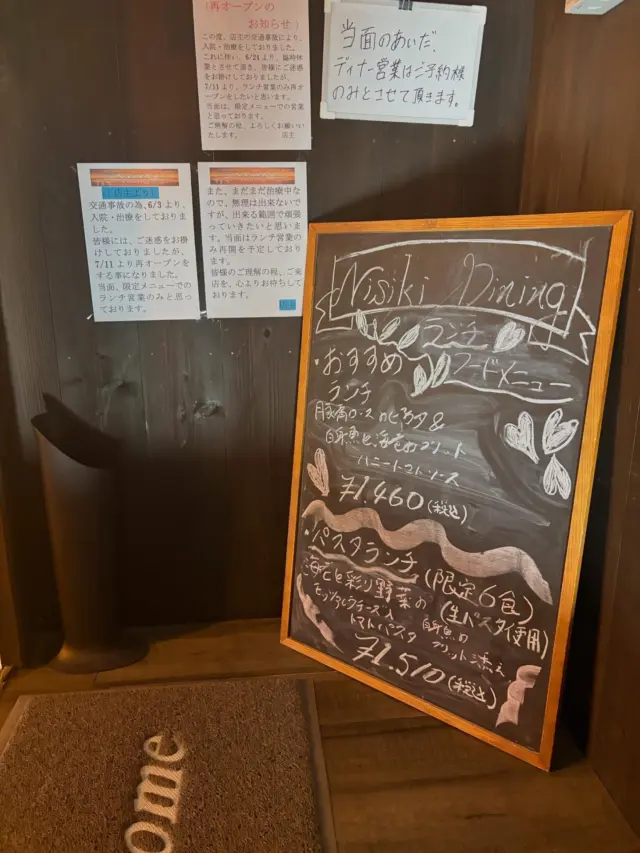 (再オープンの
お知らせ)
この度、店主の交通事故により、
入院・治療をしておりました。
これに伴い、6/21より、臨時休
業とさせて頂き、皆様にご迷惑
をお掛けしておりましたが、
7/11より、ランチ営業のみ再オ
ープンをしたいと思います。
当面は、限定メニューでの営業
と思っております。
ご無理解の程、よろしくお願いい
たします。 店主
当面のあいだ、
ディナー営業はご予約様
のみとさせて頂きます。
(店主より)
交通事故の為、6/3より、
入院・治療をしておりま
した。
皆様には、ご迷惑をお掛
けしておりましたが、
7/11より再オープンを
する事になりました。
当面、限定メニューでの
ランチ営業のみと思っ
ております。
また、まだまだ治療中な
ので、無理は出来ないで
すが、出来る範囲で頑張
っていきたいと思いま
す。当面はランチ営業の
み再開を予定しており
ます。
皆様のご理解の程、ご来
店を、心よりお待ちして
おります。
店主
Nisiki Dining
ランチ
フードメニュー
・おすすめ
ランチ
白身魚と海老のフリット
ハニートマトソース
¥1.460(税込)
・パスタランチ(限定6食)
海老と彩り野菜の(生パスタ使用)
モッツァレラチーズ入
トマトパスタ 白身魚の
フリット添え
¥1.510(税込)
ome